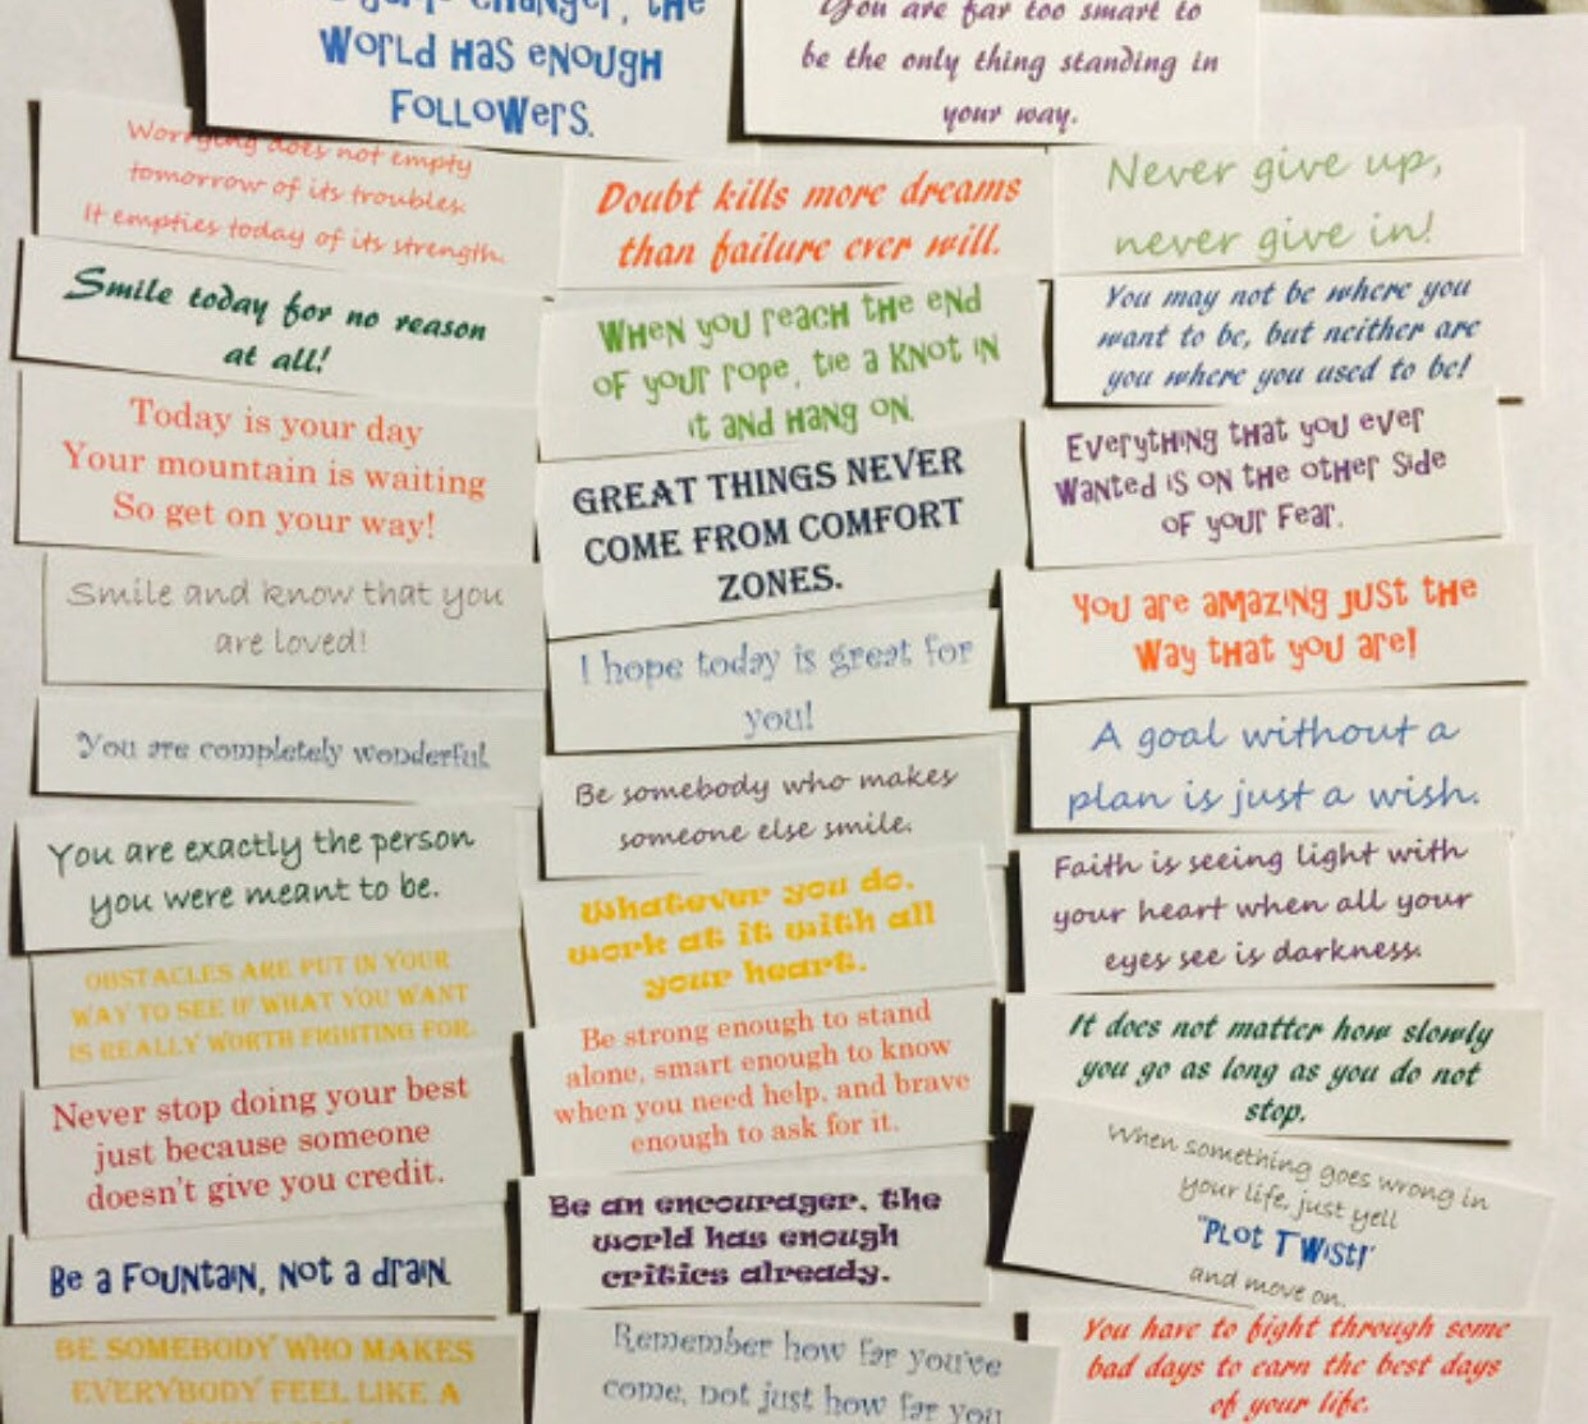 changer, the
World has enough
Followers.
You are far too smart to
be the only thing standing in
your way.
Worrying does not empty
tomorrow of its troubles.
It empties today of its strength.
Smile today for no reason
at all!
Today is your day
Your mountain is waiting
So get on your way!
Smile and know that you
are loved!
You are completely wonderful.
You are exactly the person
you were meant to be.
OBSTACLES ARE PUT IN YOUR
WAY TO SEE IF WHAT YOU WANT
IS REALLY WORTH FIGHTING FOR.
Never stop doing your best
just because someone
doesn't give you credit.
Be a Fountain, Not a drain.
BE SOMEBODY WHO MAKES
EVERYBODY FEEL LIKE A
Doubt kills more dreams
than failure ever will.
When you reach the end
of your rope, tie a knot in
it and hang on.
GREAT THINGS NEVER
COME FROM COMFORT
ZONES.
I hope today is great for
you!
Be somebody who makes
someone else smile.
Whatever you do,
work at it with all
your heart.
Be strong enough to stand
alone, smart enough to know
when you need help, and brave
enough to ask for it.
Be an encourager, the
world has enough
critics already.
Remember how far you've
come, not just how far you
Never give up,
never give in!
You may not be where you
want to be, but neither are
you where you used to be!
Everything that you ever
wanted is on the other side
of your fear.
You are amazing just the
way that you are!
A goal without a
plan is just a wish.
Faith is seeing light with
your heart when all your
eyes see is darkness.
It does not matter how slowly
you go as long as you do not
stop.
When something goes wrong in
your life, just yell
"Plot Twist!"
and move on.
You have to fight through some
bad days to earn the best days
of your life.